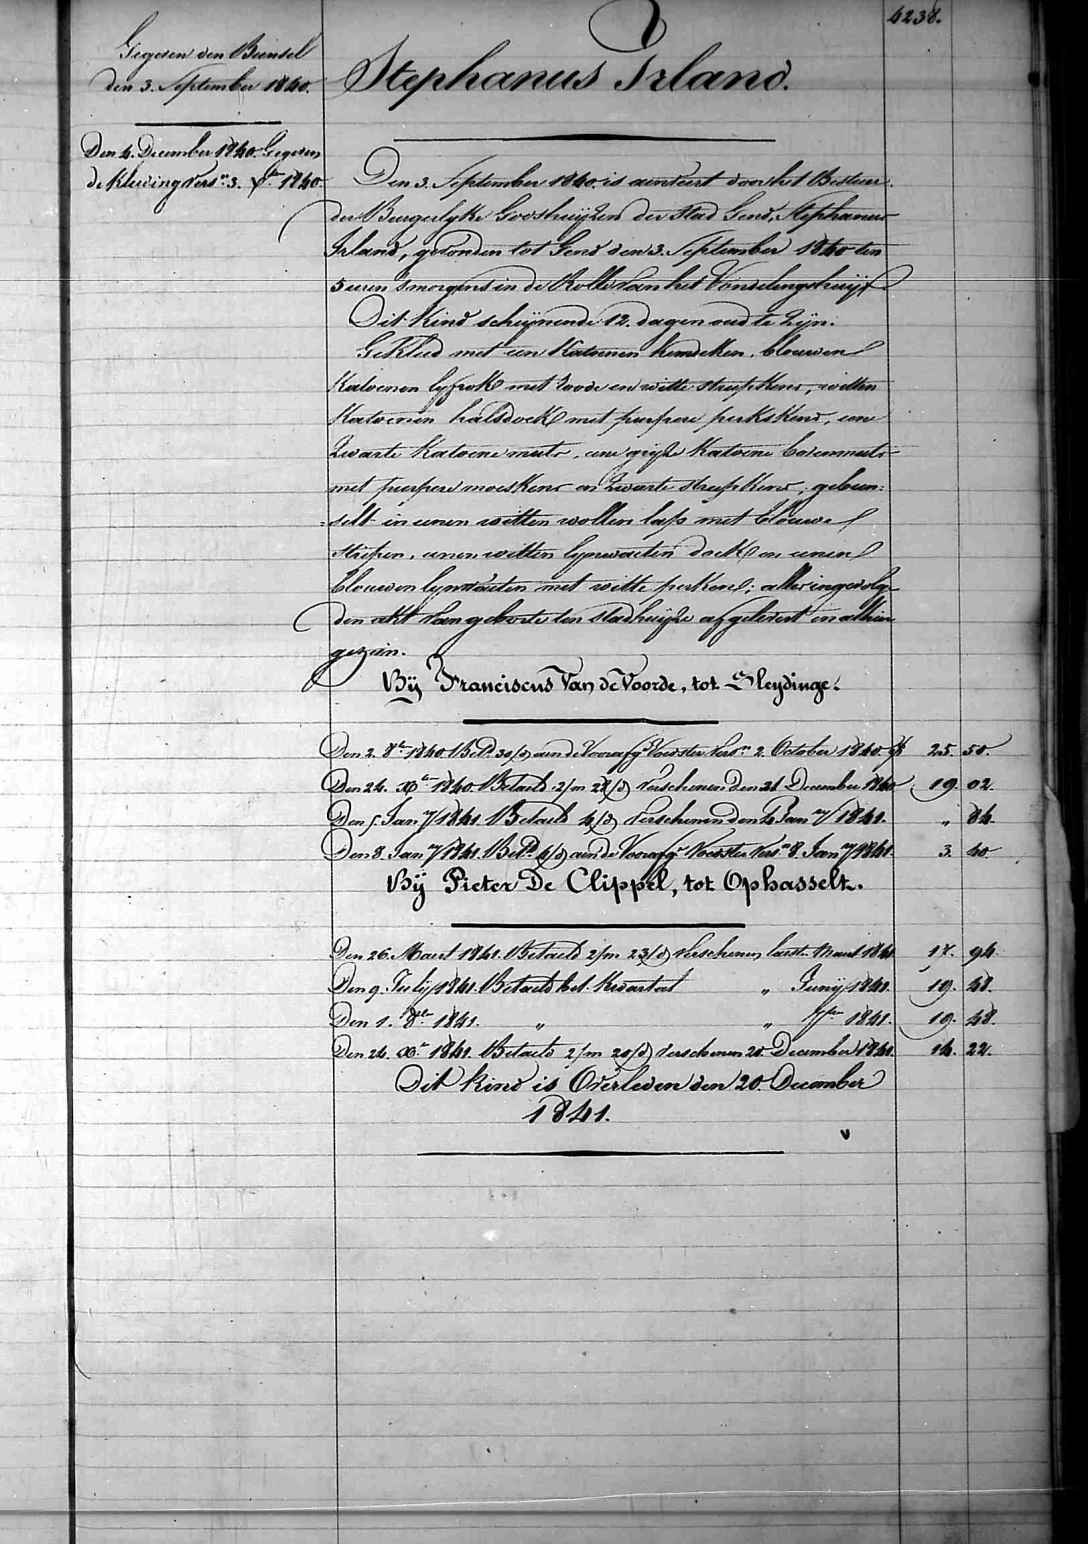 4238.
Gegeven den Buinsel
den 3. September 1840.
Den 4. December 1840. Gegeven
de kleeding vers.n 3. X.br 1840.
Stephanus Irland.
Den 3. September 1840. is aenveert door het Bestuer
der Burgerlyke Godshuijzen der stad Gend, Stephanus
Irland, gevonden tot Gend den 3. September 1840 ten
5 uren 's morgens in de Rolle van het Vondelingshuijs
Dit kind schijnende 12. dagen oud te zijn.
Gekleed met een katoenen hemdeken, blouwen
katoenen lyfrok met roode en witte streepkens, witten
katoenen halsdoek met purpere perkskens, eene
zwarte katoene muts, eene grijze katoene bovenmuts
met purpere moeskens en zwarte streepkens, gebun:
:selt in eenen witten wollen laps met blouwe
striepen, eenen witten lynwaeten doek en eenen
blouwen lynwaeten met witte perken; alles ingevolge
den akt van geboorte ten stadhuijze afgelevert en alhier
gezien.
Bij Franciscus Van de Voorde, tot Sleydinge.
Den 2. 8.br 1840. Bet.d 30/d aen de Voorafg.e Voedster vers.n 2. October 1840. 25. 50.
Den 24. X.br 1840. Betaeld 2/m 28/d verschenen den 31 December 1840. 19. 02.
Den 5. Jan.ry 1841. Betaeld 4/d verschenen den 4 Jan.ry 1841. " 84.
Den 8. Jan.ry 1841. Bet.d 4/d aen de Voorafg.e Voedster vers.n 8. Jan.ry 1841. 3. 40.
Bij Pieter De Clippel, tot Ophasselt.
Den 26. Maert 1841. Betaeld 2/m 23/d verschenen laest. Maert 1841. 17. 94.
Den 9. Julij 1841. Betaeld het kwartael " Junij 1841. 19. 48.
Den 1. 8.br 1841. " " 7.ber 1841. 19. 48.
Den 24. X.br 1841. Betaeld 2/m 20/d verschenen 20. December 1841. 14. 22.
Dit kind is Overleden den 20. December
1841.
v